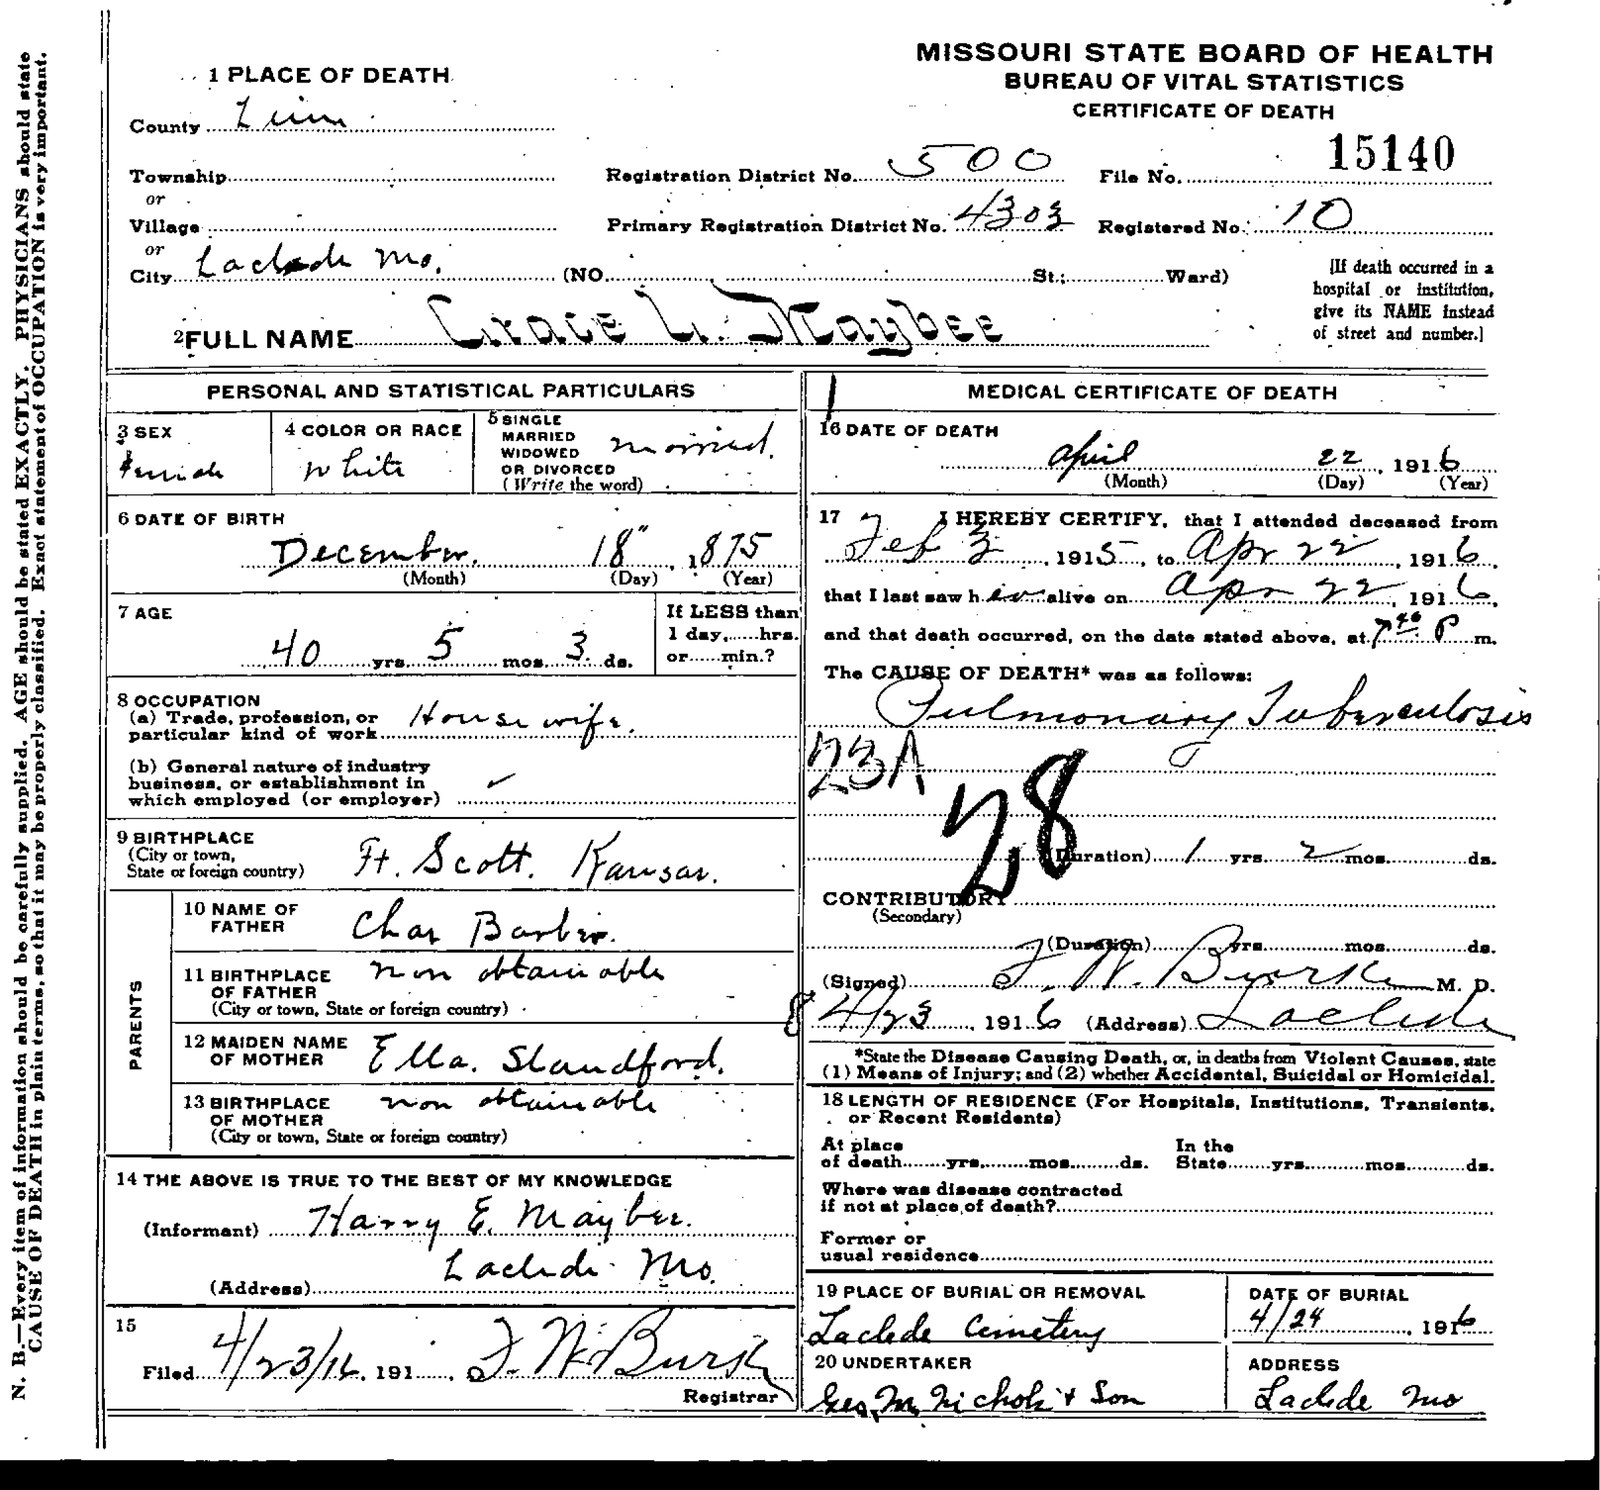 MISSOURI STATE BOARD OF HEALTH
BUREAU OF VITAL STATISTICS
CERTIFICATE OF DEATH
1 PLACE OF DEATH
County Linn
Township
or
Village
or
City Laclede Mo. (NO. St.; Ward)
Registration District No. 500 File No. 15140
Primary Registration District No. 4303 Registered No. 10
[If death occurred in a
hospital or institution,
give its NAME instead
of street and number.]
2 FULL NAME Grace L. Maybee
PERSONAL AND STATISTICAL PARTICULARS
3 SEX
female
4 COLOR OR RACE
White
5 SINGLE
MARRIED
WIDOWED
OR DIVORCED
(Write the word)
married.
6 DATE OF BIRTH
December. 18" , 1875
(Month) (Day) (Year)
7 AGE
40 yrs. 5 mos. 3 ds.
If LESS than
1 day, hrs.
or min.?
8 OCCUPATION
(a) Trade, profession, or
particular kind of work House wife.
(b) General nature of industry
business, or establishment in
which employed (or employer) ✓
9 BIRTHPLACE
(City or town,
State or foreign country)
Ft. Scott. Kansas.
PARENTS
10 NAME OF
FATHER
Chas Barber.
11 BIRTHPLACE
OF FATHER
(City or town, State or foreign country)
non obtainable
12 MAIDEN NAME
OF MOTHER
Ella. Standford.
13 BIRTHPLACE
OF MOTHER
(City or town, State or foreign country)
non obtainable
14 THE ABOVE IS TRUE TO THE BEST OF MY KNOWLEDGE
(Informant) Harry E. Maybee.
(Address) Laclede Mo.
15
Filed 4/23/16, 191 F. W. Burk
Registrar
MEDICAL CERTIFICATE OF DEATH
16 DATE OF DEATH
April 22, 1916
(Month) (Day) (Year)
17 I HEREBY CERTIFY, that I attended deceased from
Feb 3, 1915, to Apr 22, 1916,
that I last saw her alive on Apr 22, 1916,
and that death occurred, on the date stated above, at 7 40 P m.
The CAUSE OF DEATH* was as follows:
Pulmonary Tuberculosis
23A
28
(Duration) 1 yrs. 2 mos. ds.
CONTRIBUTORY
(Secondary)
(Duration) yrs. mos. ds.
(Signed) F. W. Burk M. D.
4/23, 1916 (Address) Laclede
*State the Disease Causing Death, or, in deaths from Violent Causes, state
(1) Means of Injury; and (2) whether Accidental, Suicidal or Homicidal.
18 LENGTH OF RESIDENCE (For Hospitals, Institutions, Transients,
or Recent Residents)
At place
of death yrs. mos. ds.
In the
State yrs. mos. ds.
Where was disease contracted
if not at place of death?
Former or
usual residence
19 PLACE OF BURIAL OR REMOVAL
Laclede Cemetery
DATE OF BURIAL
4/24, 1916
20 UNDERTAKER
Geo. M. Nichols & Son
ADDRESS
Laclede Mo
N. B.—Every item of information should be carefully supplied. AGE should be stated EXACTLY. PHYSICIANS should state
CAUSE OF DEATH in plain terms, so that it may be properly classified. Exact statement of OCCUPATION is very important.